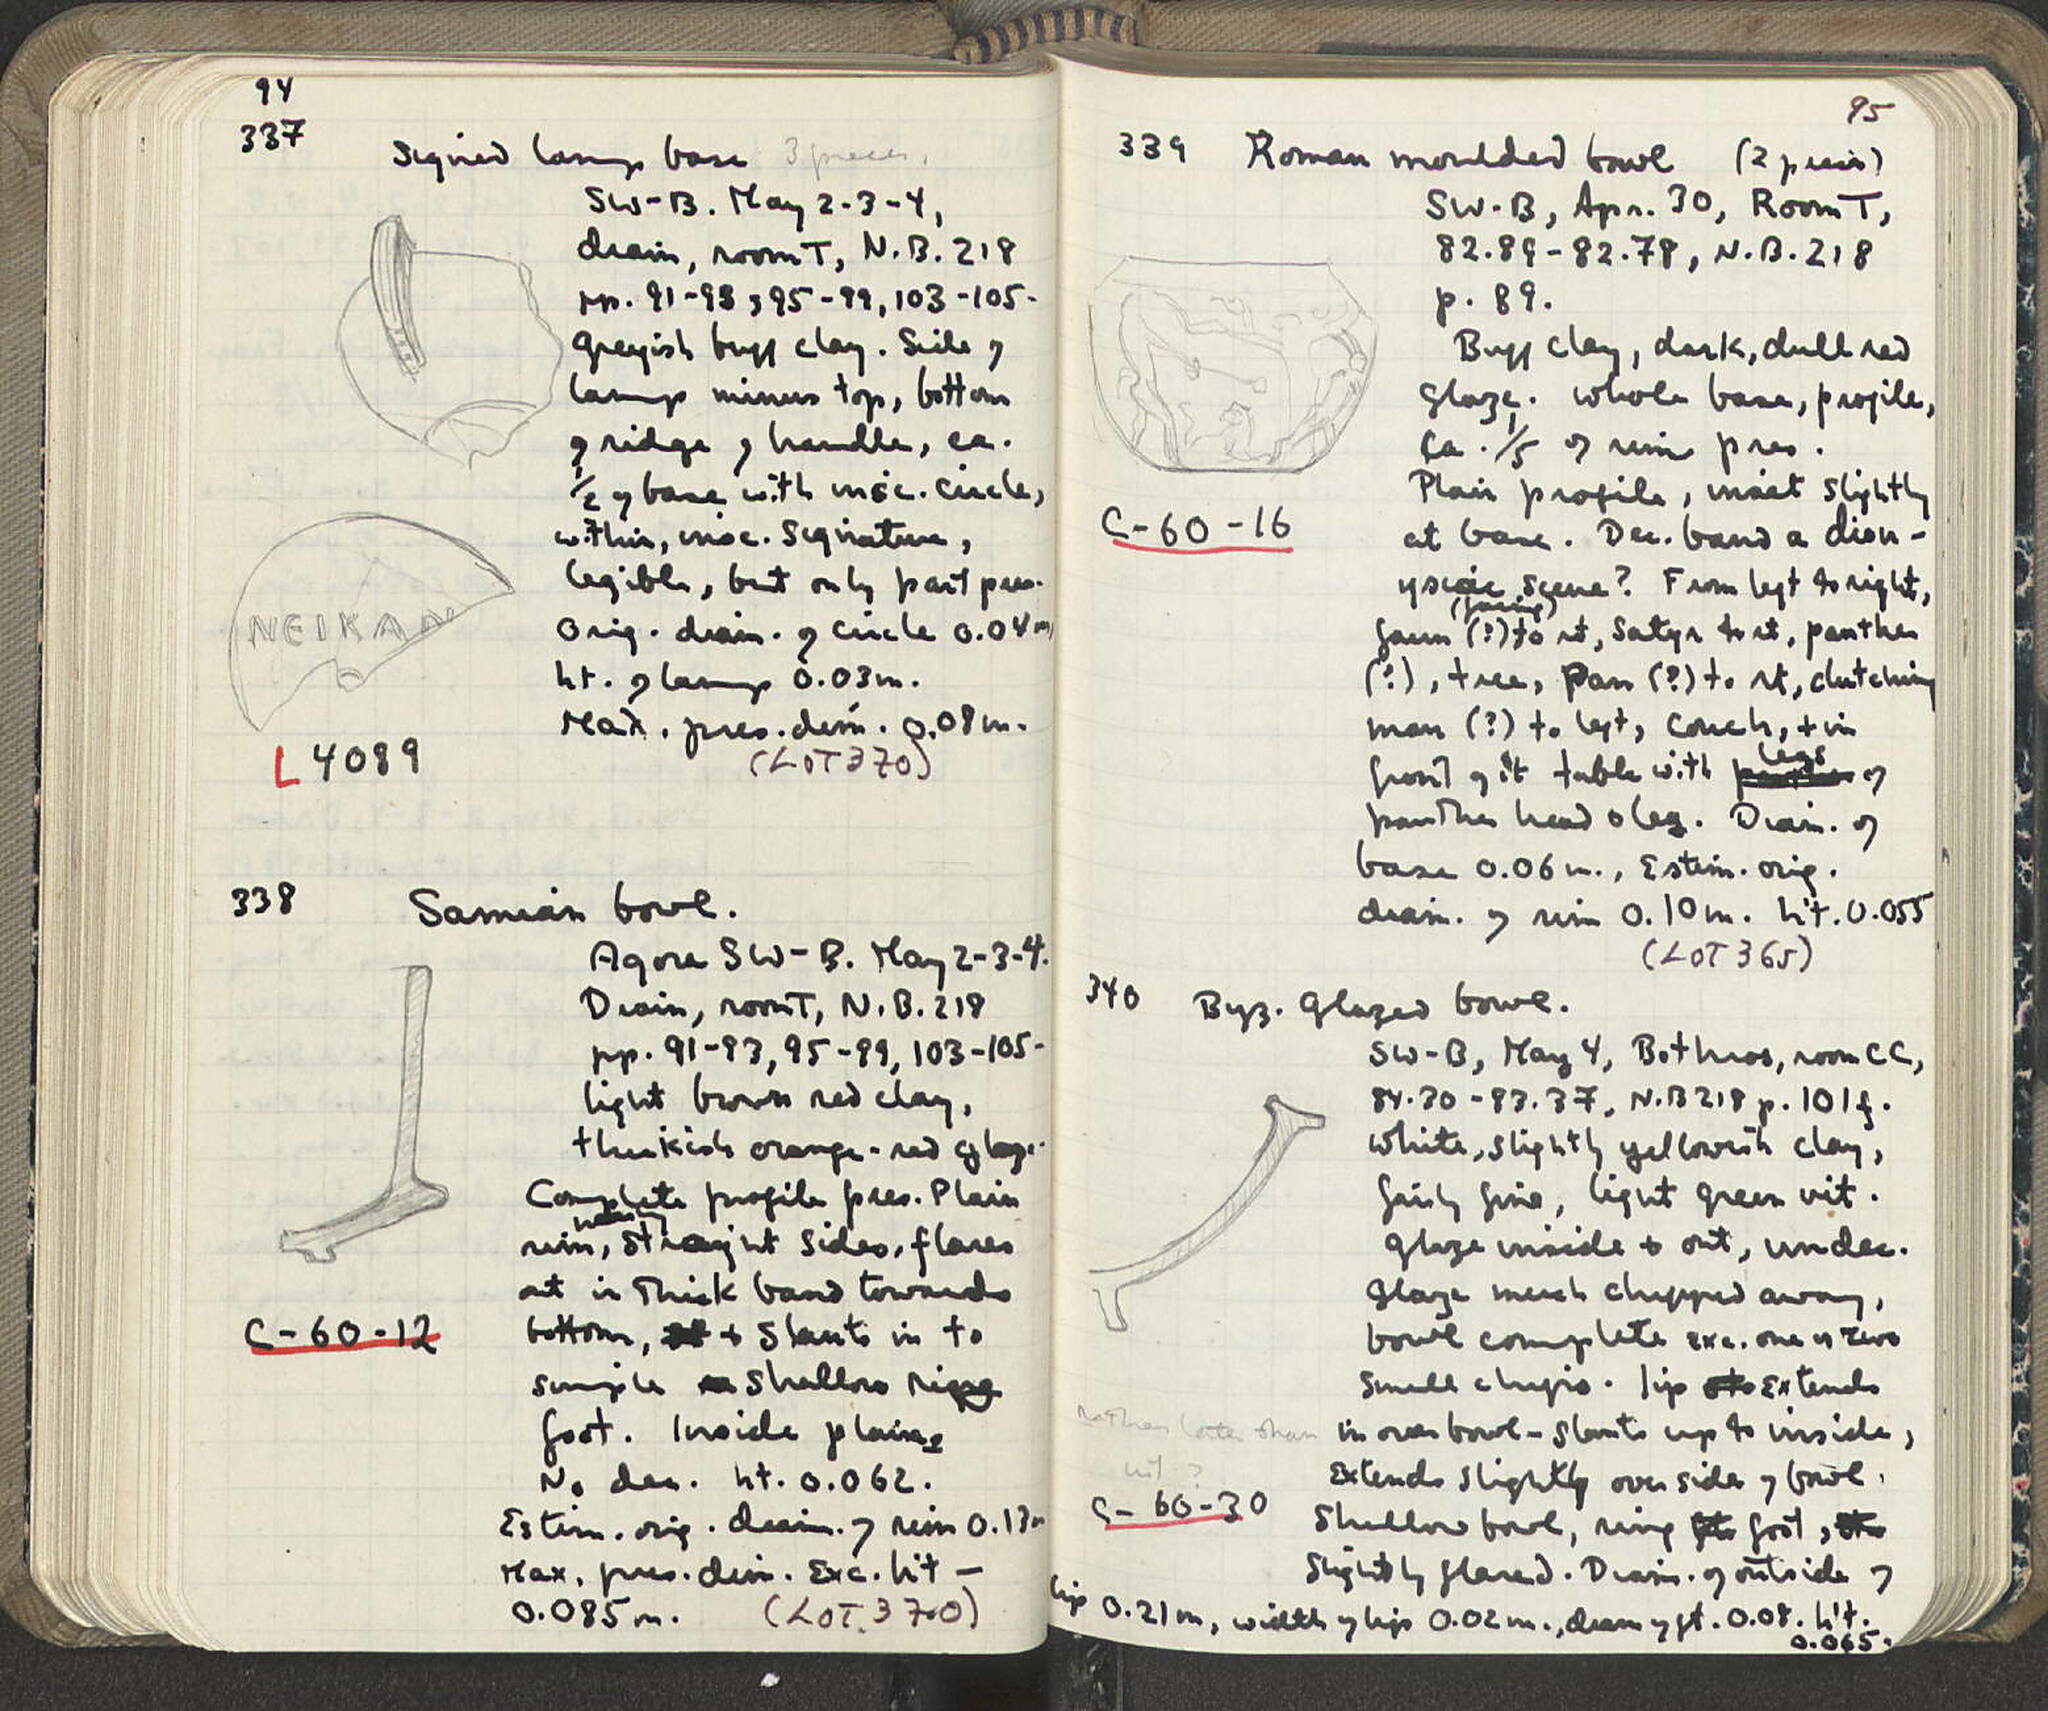 94
337
Signed lamp base 3 pieces.
SW-B. May 2-3-4,
drain, room T, N.B. 218
pp. 91-93, 95-99, 103-105-
Greyish buff clay. Side of
lamp minus top, bottom
of ridge of handle, ca.
1/2 of base with inc. circle,
within, inc. signature,
legible, but only part pres.
Orig. diam. of circle 0.04m
ht. of lamp 0.03m.
Max. pres. dim. 0.08m.
(LOT 370)
NEIKAA
L 4089
338
Samian bowl.
Agora SW-B. May 2-3-4.
Drain, room T, N.B. 218
pp. 91-93, 95-99, 103-105-
light brown red clay,
thickish orange-red glaze.
Complete profile pres. Plain
rim, nearly straight sides, flares
out in thick band towards
bottom, + slants in to
simple shallow ring
foot. Inside plain.
No dec. ht. 0.062.
Estim. orig. diam. of rim 0.13m
Max. pres. dim. exc. hit –
0.085m. (LOT 370)
C-60-12
95
339
Roman moulded bowl (2 pieces)
SW-B, Apr. 30, Room T,
82.89-82.78, N.B. 218
p. 89.
Buff clay, dark, dull red
glaze. Whole base, profile,
ca. 1/5 of rim pres.
Plain profile, inset slightly
at base. Dec. band a dion-
ysiac scene? From left to right,
faun (?) (facing) to rt, Satyr to rt, panther
(?), tree, Pan (?) to rt, clutching
man (?) to left, couch, + in
front of it table with legs of
panther head & leg. Diam. of
base 0.06m., Estim. orig.
diam. of rim 0.10m. ht. 0.055
(LOT 365)
C-60-16
340
Byz. glazed bowl.
SW-B, May 4, Bothros, room CC,
84.30-83.37, N.B 218 p. 101f.
White, slightly yellowish clay,
fairly fine, light green vit.
glaze inside & out, undec.
Glaze much chipped away,
bowl complete exc. one or two
small chips. lip extends
in over bowl – slants up to inside,
Extends slightly over side of bowl.
Shallow bowl, ring foot,
slightly flared. Diam. of outside of
lip 0.21m, width of lip 0.02m., diam of ft. 0.08. ht.
0.065.
rather later than
C-60-30